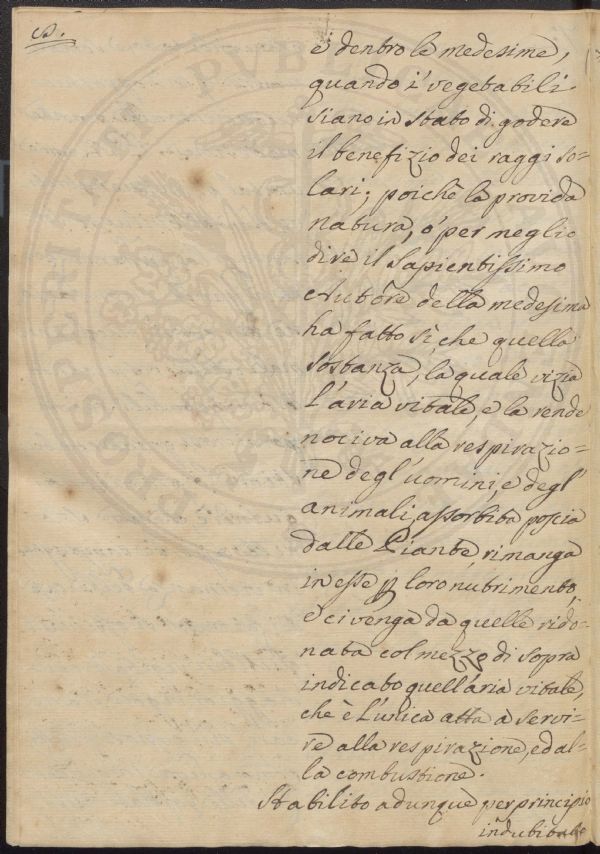 è dentro le medesime,
quando i' vegetabili
siano in stato di godere
il benefizio dei raggi so=
lari; poichè la provida
natura, o' per meglio
dire il Sapientissimo
Autore della medesima
ha fatto sì che quella
sostanza, la quale vizia
l'aria vitale, e la rende
nociva alla respirazio=
ne degl'uomini, e degl'
animali, assorbita poscia
dalle Piante, rimanga
in esse p loro nutrimento,
e ci venga da quelle rido=
nata col mezzo di sopra
indicato quell'aria vitale,
che è l'unica atta a servi=
re alla respirazione, ed al=
la combustione.
Stabilito adunque per principio
indubitabile
PROSPERITAS PUBLICA